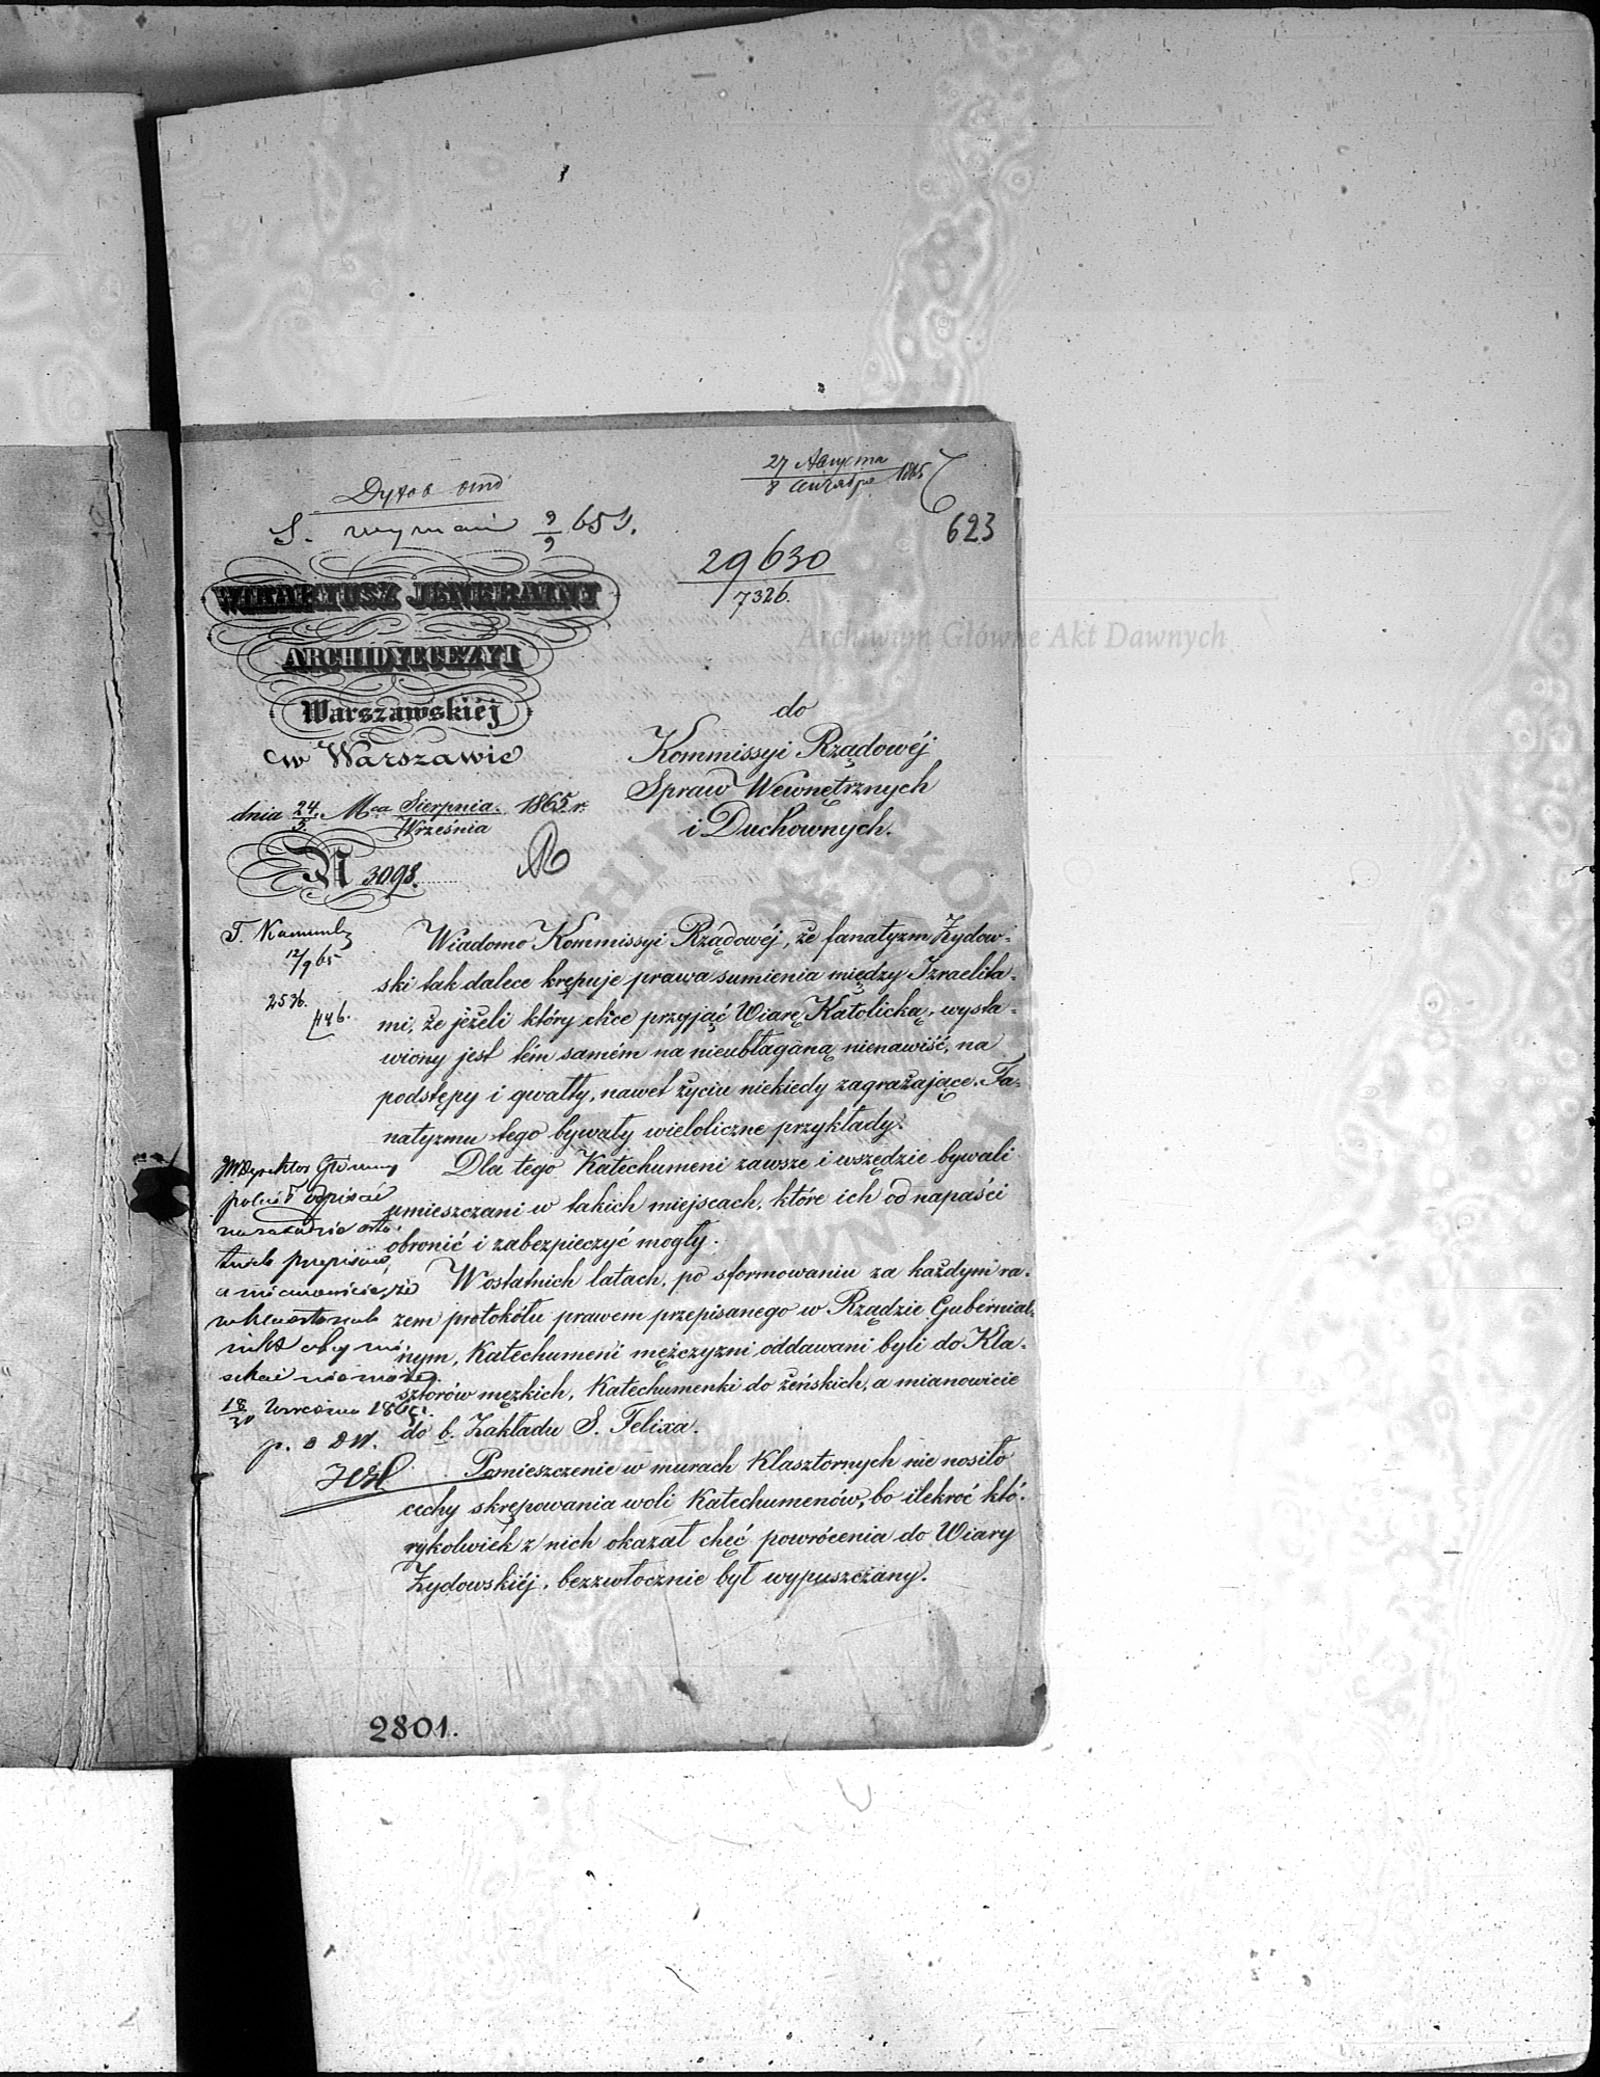 27 Августа
8 Сентября 1865
623
S. wyznań 9/9 65 r.
29630
7326.
WIKARYUSZ JENERALNY
ARCHIDYECEZYI
Warszawskiéj
w Warszawie
dnia 24/5. Mca Sierpnia/Września 1865 r.
N 3098.
do
Kommissyi Rządowéj
Spraw Wewnętrznych
i Duchownych.
12/9 65
2536.
Wiadomo Kommissyi Rządowéj, że fanatyzm Żydow-
ski tak dalece krępuje prawa sumienia między Izraelita-
mi, że jeżeli który chce przyjąć Wiarę Katolicką, wysta-
wiony jest tém samém na nieubłaganą nienawiść, na
podstępy i gwałty, nawet życiu niekiedy zagrażające. Fa-
natyzmu tego bywały wieloliczne przykłady.
Dla tego Katechumeni zawsze i wszędzie bywali
umieszczani w takich miejscach, które ich od napaści
obronić i zabezpieczyć mogły.
W ostatnich latach, po sformowaniu za każdym ra-
zem protokółu prawem przepisanego w Rządzie Gubernial-
nym, Katechumeni mężczyzni oddawani byli do Kla-
sztorów męzkich, Katechumenki do żeńskich, a mianowicie
do b. Zakładu S. Felixa.
Pomieszczenie w murach Klasztornych nie nosiło
cechy skrępowania woli Katechumenów, bo ilekroć któ-
rykolwiek z nich okazał chęć powrócenia do Wiary
Żydowskiéj, bezzwłocznie był wypuszczany.
JW Dyrektor Główny
polecił odpisać
na zasadzie osta-
tnich przepisów,
a mianowicie, że
w klasztorach
nikt obcy mie-
szkać nie może.
18/30 Września 1865 r.
p. o DW.
2801.
Archiwum Główne Akt Dawnych